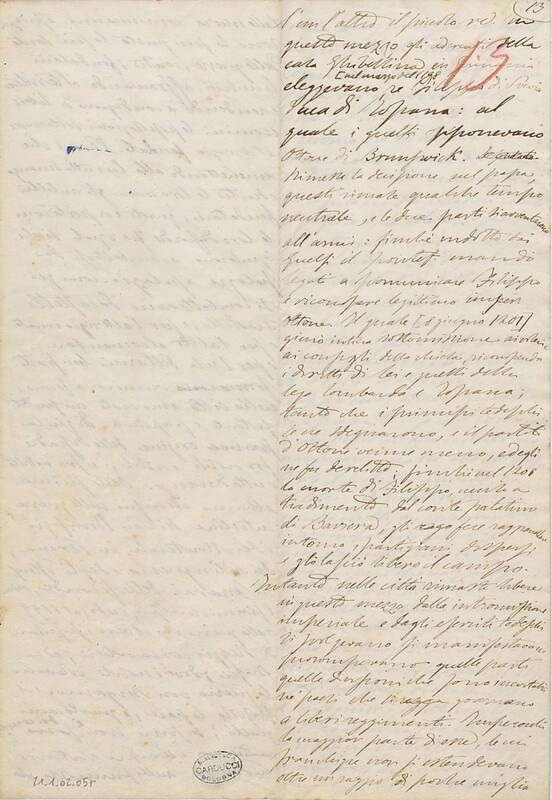 13
13
l'un l'altro il piccolo re. in
questo mezzo gli aderenti della
casa Ghibellina in
[nel marzo del 1198
eleggevano re Filippo di Svevia
duca di Toscana: al
quale i guelfi opponevano
Ottone di Brunswick.
Rimessa la decisione nel papa,
questi rimase qualche tempo
neutrale, e le due parti s'avventarono
all'armi: finché indotto dai
guelfi il pontef. mandò
legati a scomunicare Filippo
e riconoscere legittimo imper
Ottone. Il quale [8 giugno 1201]
giurò intiera sottomissione ai voleri e
ai consigli della chiesa, riconoscendo
i diritti di lei e quelli della
lega lombarda e toscana;
tanto che i principi tedeschi
se ne sdegnarono, e il partito
d'Ottone venne meno, ed egli
ne fu derelitto; finché nel 1208
la morte di Filippo, ucciso a
tradimento dal conte palatino
di Baviera, gli fece raggranellare
intorno i partigiani dispersi
e gli lasciò libero il campo.
Intanto nelle città rimaste libere
in questo mezzo dalla intromissione
imperiale e dagli eserciti tedeschi
si svolgevano si manifestavano
prorompevano quelle parti
quelle divisioni che sono
ne' paesi che governano
a liberi reggimenti.
la maggior parte di esse, le cui
franchigie non si estendevano
oltre un raggio di poche miglia
CASA
CARDUCCI
BOLOGNA
21.1.02.05r